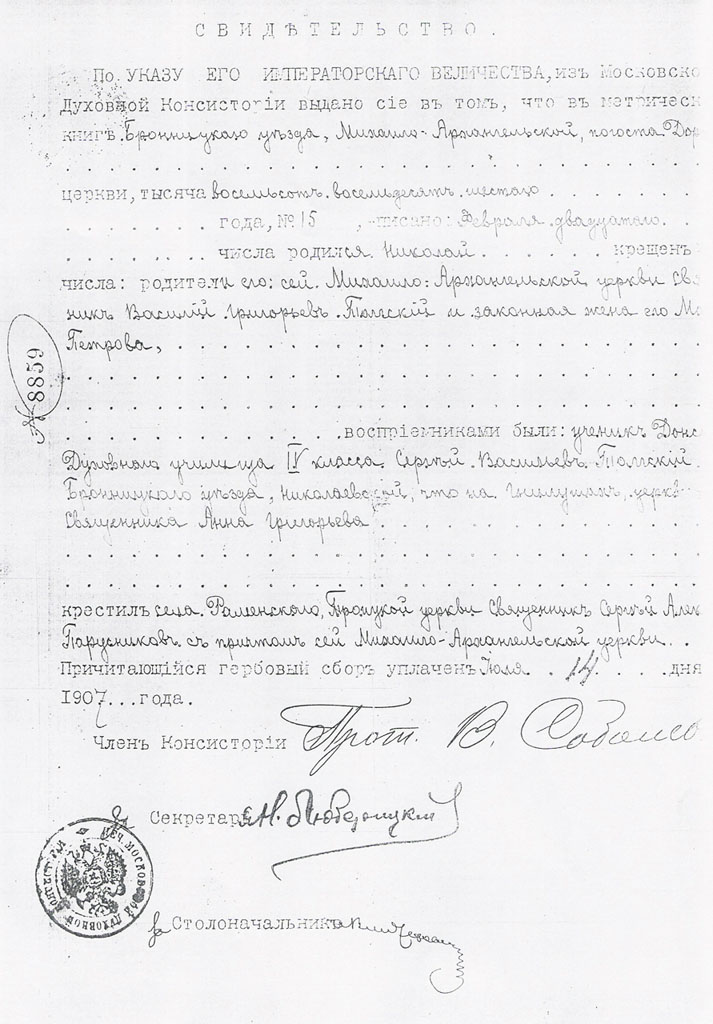 СВИДѢТЕЛЬСТВО.
По УКАЗУ ЕГО ИМПЕРАТОРСКАГО ВЕЛИЧЕСТВА, изъ Московско
Духовной Консисторіи выдано сіе въ томъ, что въ метрическ
книгѣ Бронницкаго уѣзда, Михаило-Архангельской, погоста Дор
церкви, тысяча восемьсотъ восемьдесятъ шестаго
года, № 15, писано: Февраля двадцатаго
числа родился Николай крещенъ
числа: родители его: сей Михаило-Архангельской церкви Свя
никъ Василій Григорьевъ Томскій и законная жена его Ма
Петрова,
№ 8859
воспріемниками были: ученикъ Донс
Духовнаго училища IV класса Сергѣй Васильевъ Томскій
Бронницкаго уѣзда, Николаевской, что на церкв
Священника Анна Григорьева
крестилъ села Раменскаго, Троицкой церкви Священникъ Сергѣй Алек
Парусниковъ съ причтомъ сей Михаило-Архангельской церкви.
Причитающійся гербовый сборъ уплаченъ Іюля 14 дня
1907 года.
Членъ Консисторіи Прот. В. Соболев
Секретарь Н. Любе
Столоначальникъ
ПЕЧ МОСКОВСКОЙ ДУХОВНОЙ